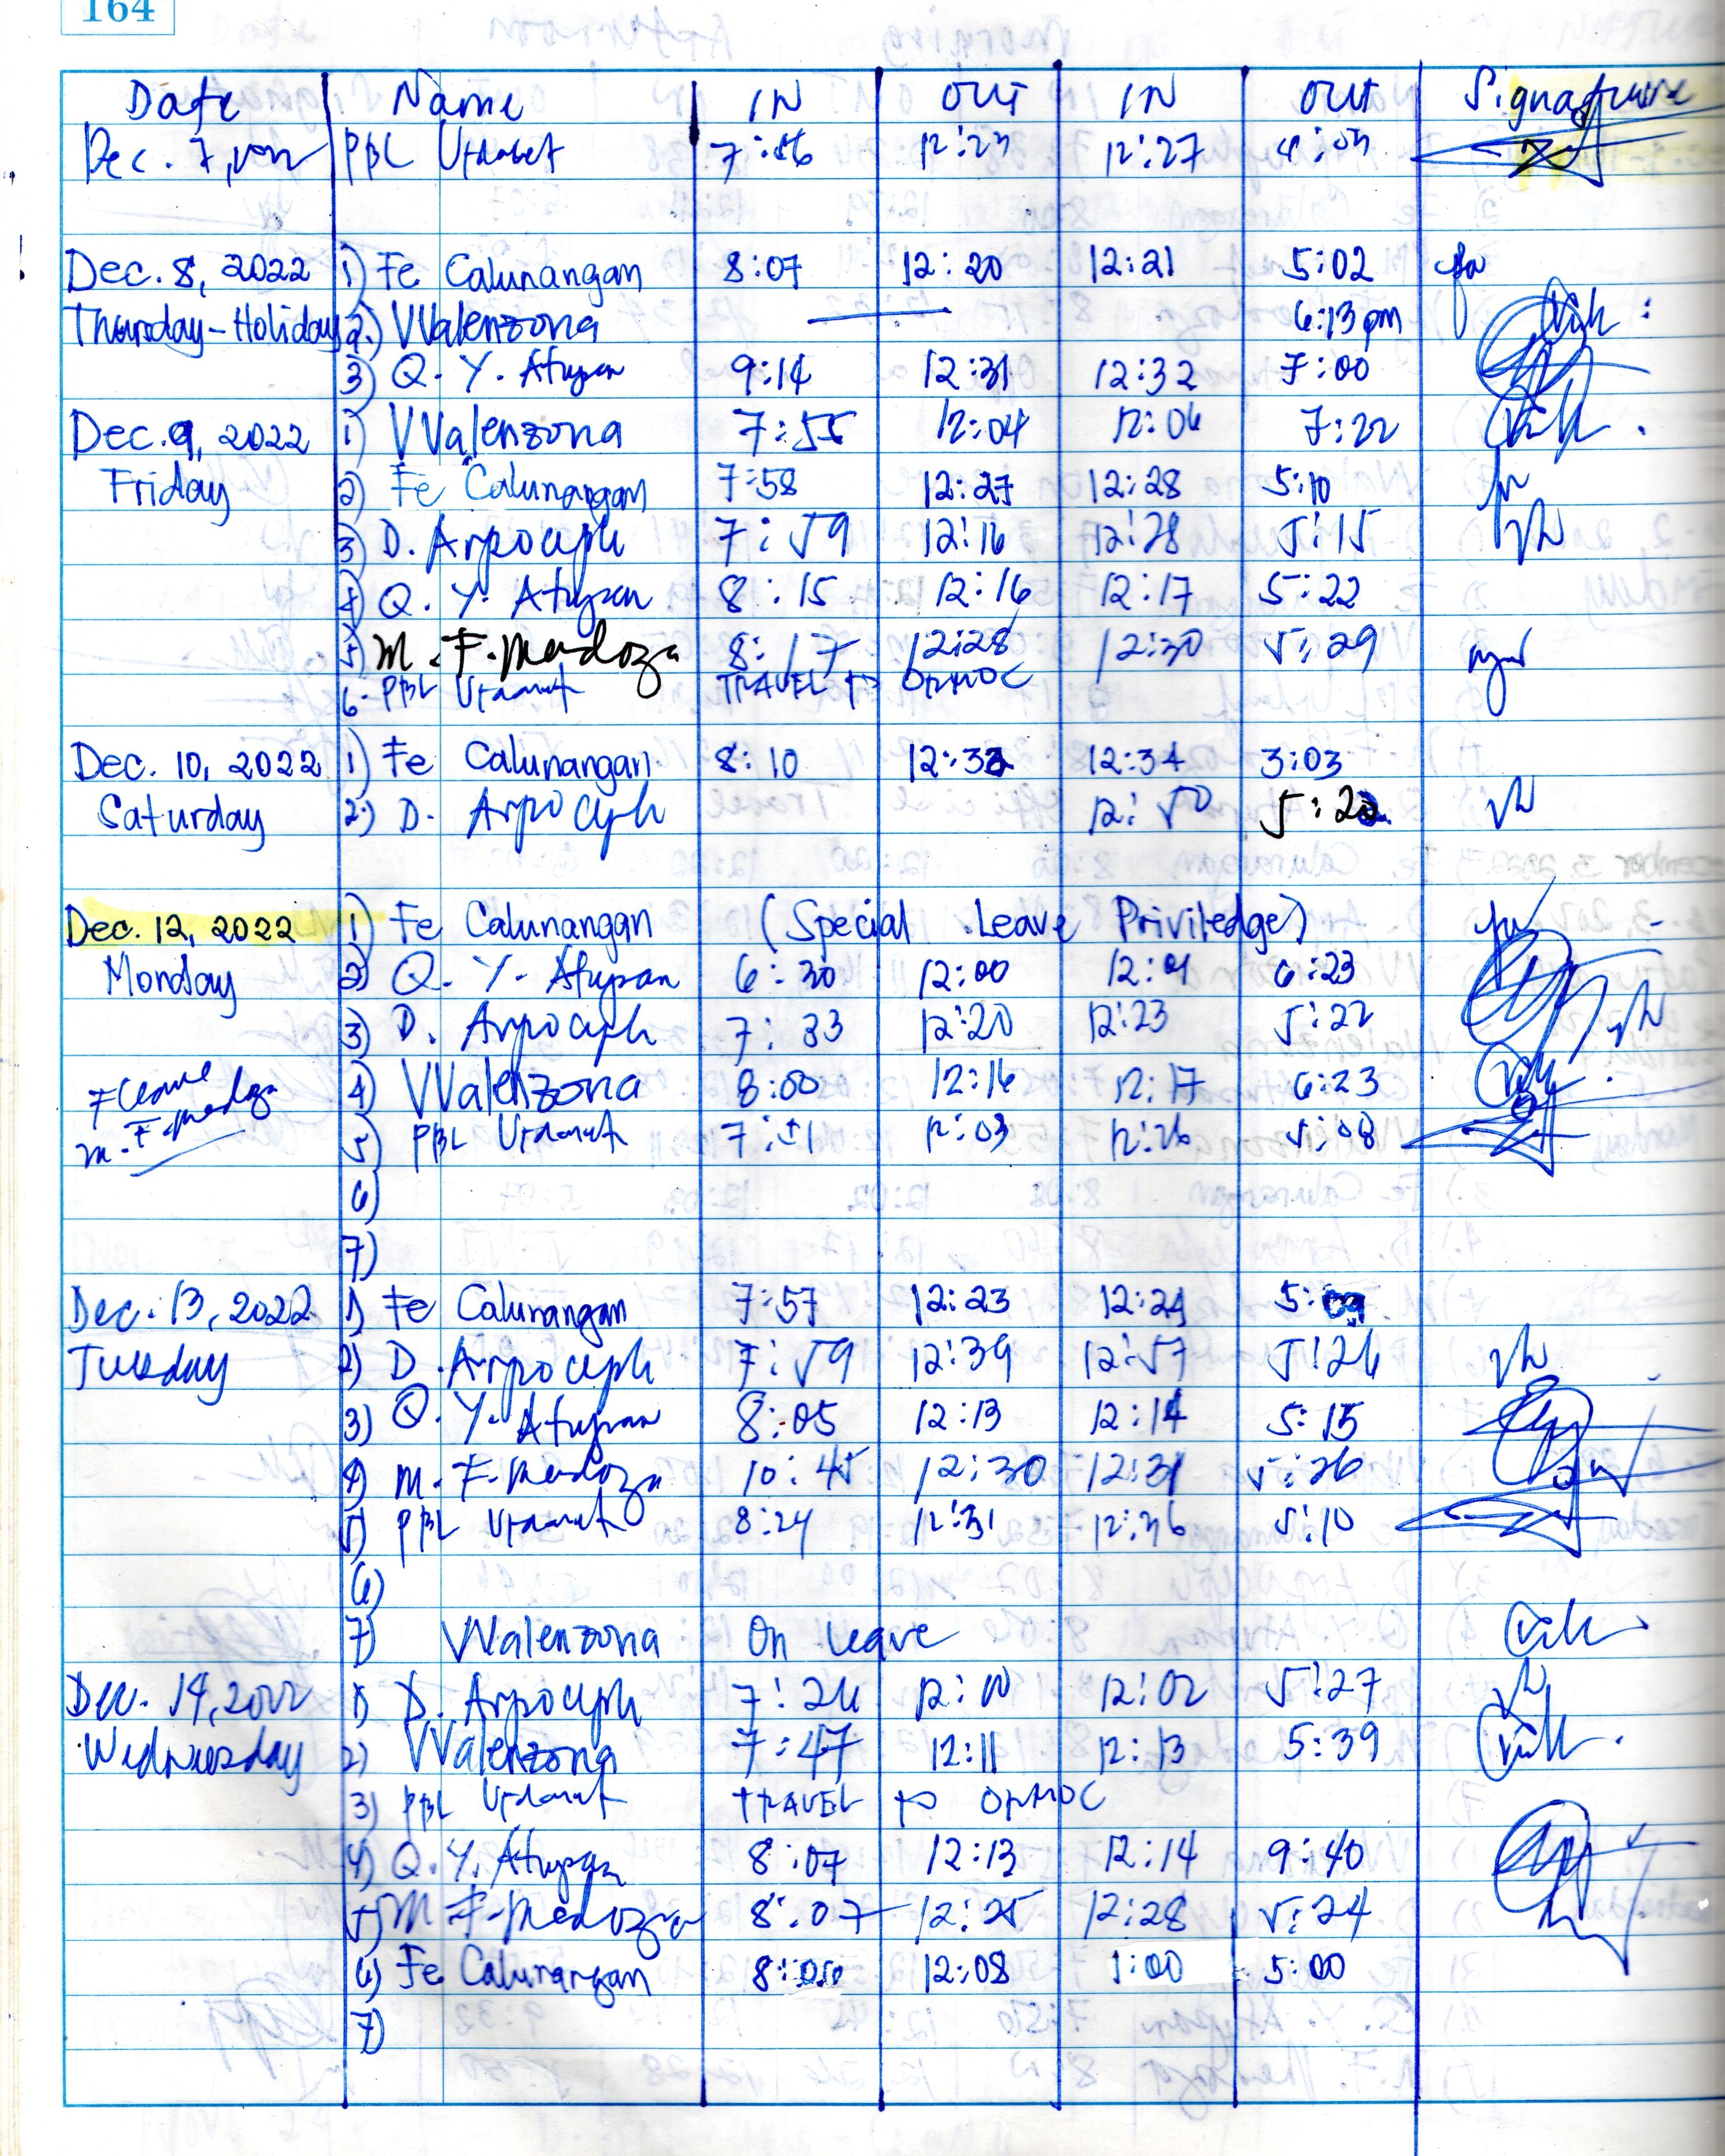 164
Date Name IN OUT IN OUT Signature
Dec. 7, PBL 12:23 12:27 4:03
Dec. 8, 2022 1) Fe Calunangan 8:07 12:20 12:21 5:02
Thursday-Holiday 2.) VValenzona 6:13 pm
3) Q. Y. Atupan 9:14 12:31 12:32 7:00
Dec. 9, 2022 1) VValenzona 7:55 12:04 12:06 7:22
Friday 2) Fe Calunangan 7:58 12:27 12:28 5:10
3) D. 7:59 12:16 12:28 5:15
4) Q. Y. Atupan 8:15 12:16 12:17 5:22
5) M. F. Mendoza 8:17 12:28 12:30 5:29
6. PBL TRAVEL TO ORMOC
Dec. 10, 2022 1) Fe Calunangan 8:10 12:34 3:03
Saturday 2) D. 12:50
Dec. 12, 2022 1) Fe Calunangan (Special Leave Priviledge)
Monday 2) Q. Y. Atupan 6:30 12:00 12:01 6:23
3) D. 7:33 12:20 12:23 5:22
F Leave 4) VValenzona 8:00 12:16 12:17 6:23
M. F. Mendoza 5) PBL 7:51 12:03 12:26 5:08
6)
7)
Dec. 13, 2022 1) Fe Calunangan 7:57 12:23 12:24
Tuesday 2) D. 7:59 12:39 12:57 5:26
3) Q. Y. Atupan 8:05 12:13 12:14 5:15
4) M. F. Mendoza 10:45 12:30 12:31 5:26
5) PBL 8:24 12:31 12:36 5:10
6)
7) VValenzona On leave
Dec. 14, 2022 1) D. 7:26 12:00 12:02 5:27
Wednesday 2) VValenzona 7:47 12:11 12:13 5:39
3) PBL TRAVEL TO ORMOC
4) Q. Y. Atupan 8:07 12:13 12:14 9:40
5) M F. Mendoza 8:07 12:25 12:28 5:24
6) Fe Calunangan 12:08 1:00 5:00
7)